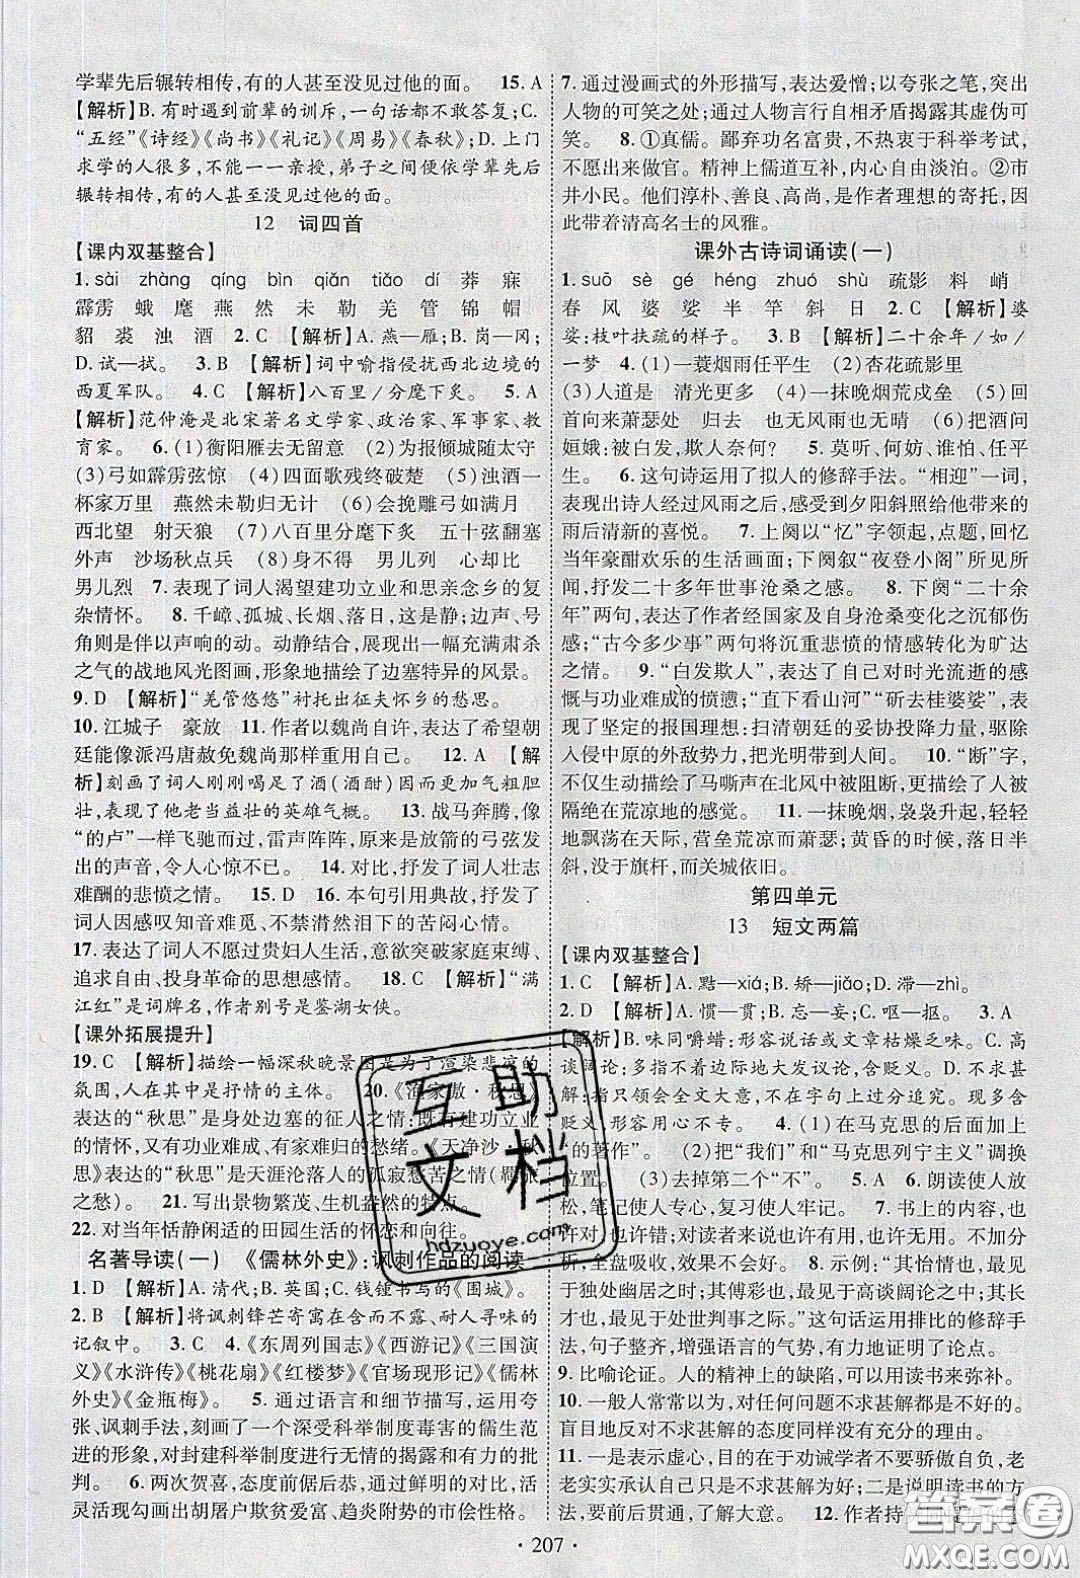 学辈先后辗转相传,有的人甚至没见过他的面。 15. A
【解析】B. 有时遇到前辈的训斥,一句话都不敢答复;C.
“五经”《诗经》《尚书》《礼记》《周易》《春秋》;D. 上门
求学的人很多,不能一一亲授,弟子之间便依学辈先后
辗转相传,有的人甚至没见过他的面。
12 词四首
【课内双基整合】
1. sài zhàng qíng bìn qiǎn tiǎo dí 莽 寐
霹雳 蛾 麾 燕 然 未 勒 羌 管 锦 帽
貂 裘 浊 酒 2. C 【解析】A. 燕—雁;B. 岗—冈;
D. 试—拭。 3. B 【解析】词中喻指侵扰西北边境的
西夏军队。 4. C 【解析】八百里/分麾下炙。 5. A
【解析】范仲淹是北宋著名文学家、政治家、军事家、教
育家。 6. (1)衡阳雁去无留意 (2)为报倾城随太守
(3)弓如霹雳弦惊 (4)四面歌残终破楚 (5)浊酒一
杯家万里 燕然未勒归无计 (6)会挽雕弓如满月
西北望 射天狼 (7)八百里分麾下炙 五十弦翻塞
外声 沙场秋点兵 (8)身不得 男儿列 心却比
男儿烈 7. 表现了词人渴望建功立业和思亲念乡的复
杂情怀。 8. 千嶂、孤城、长烟、落日,这是静;边声、号
角则是伴以声响的动。动静结合,展现出一幅充满肃杀
之气的战地风光图画,形象地描绘了边塞特异的风景。
9. D 【解析】“羌管悠悠”衬托出征夫怀乡的愁思。
10. 江城子 豪放 11. 作者以魏尚自许,表达了希望朝
廷能像派冯唐赦免魏尚那样重用自己。 12. A 【解
析】刻画了词人刚刚喝足了酒(酒酣)因而更加气粗胆
壮,表现了他老当益壮的英雄气概。 13. 战马奔腾,像
“的卢”一样飞驰而过;雷声阵阵,原来是放箭的弓弦发
出的声音,令人心惊不已。 14. 对比,抒发了词人壮志
难酬的悲愤之情。 15. D 16. 本句引用典故,抒发了
词人因感叹知音难觅,不禁泪流青衫的苦闷心情。
17. 表达了词人不愿过贵妇人生活,意欲突破家庭束缚、
追求自由、投身革命的思想感情。 18. C 【解析】“满
江红”是词牌名,作者别号是鉴湖女侠。
【课外拓展提升】
19. C 【解析】描绘一幅深秋晚景图是为了渲染悲凉的
氛围,人在其中是抒情的主体。 20.《渔家傲·秋思》
表达的“秋思”是身处边塞的征人之情:既有建功立业
的情怀,又有功业难成、有家难归的愁绪。《天净沙·秋
思》表达的“秋思”是天涯沦落人的孤寂愁苦之情(羁旅
之愁)。 21. 写出景物繁茂、生机盎然的特点。
22. 对当年恬静闲适的田园生活的怀恋和向往。
名著导读(一) 《儒林外史》:讽刺作品的阅读
1. D 【解析】A. 清代;B. 英国;C. 钱锺书写的《围城》。
2. B 【解析】将讽刺锋芒寄寓在含蓄、耐人寻味的
记叙中。 3. C 4.《东周列国志》《西游记》《三国演
义》《水浒传》《桃花扇》《红楼梦》《官场现形记》《儒林
外史》《金瓶梅》。 5. 通过语言和细节描写,运用夸
张、讽刺手法,刻画了一个深受科举制度毒害的儒生范
进的形象,对封建科举制度进行无情的揭露和有力的批
判。 6. 两次贺喜,态度前倨后恭,通过鲜明的对比,生
灵活现勾画出胡屠户欺贫爱富、趋炎附势的市侩性格。
7. 通过漫画式的外形描写,表达爱憎;以夸张之笔,突出
人物的可笑之处;通过人物言行自相矛盾揭露其虚伪可
笑。 8. ①真儒。鄙弃功名富贵,不热衷于科举考试,
不愿出来做官。精神上儒道互补,内心自由淡泊。②市
井小民。他们淳朴、善良、高尚,是作者理想的寄托,因
此带着清高名士的风雅。
课外古诗词诵读(一)
1. suō sè gé héng zhuó shù 疏影 料 峭
春 风 婆 娑 半 竿 斜 日 2. C 【解析】婆
娑:枝叶扶疏的样子。 3. B 【解析】二十余年/如/
一梦 4. (1)一蓑烟雨任平生 (2)杏花疏影里
(3)人道是 清光更多 (4)一抹晚烟荒戍垒 (5)回
首向来萧瑟处 归去 也无风雨也无晴 (6)把酒问
姮娥:被白发,欺人奈何? 5. 莫听、何妨、谁怕、任平
生。 6. 这句诗运用了拟人的修辞手法。“相迎”一词,
表现出诗人经过风雨之后,感受到夕阳斜照给他带来的
雨后清新的喜悦。 7. 上阕以“忆”字领起,点题,回忆
当年豪酣欢乐的生活画面;下阕叙“夜登小阁”所见所
闻,抒发二十多年世事沧桑之感。 8. 下阕“二十余
年”两句,表达了作者经国家及自身沧桑变化之沉郁伤
感;“古今多少事”两句将沉重悲愤的情感转化为旷达
之情。 9.“白发欺人”,表达了自己对时光流逝的感
慨与功业难成的愤懑;“直下看山河”“斫去桂婆娑”,表
现了坚定的报国理想:扫清朝廷的妥协投降力量,驱除
入侵中原的外敌势力,把光明带到人间。 10.“断”字,
不仅生动描绘了马嘶声在北风中被阻断,更描绘了人被
隔绝在荒凉地的感觉。 11. 一抹晚烟,袅袅升起,轻轻
地飘荡在天际,营垒荒凉而萧瑟;黄昏的时候,落日半
斜,没于旗杆,而关城依旧。
第四单元
13 短文两篇
【课内双基整合】
1. C 【解析】A. 黠—xiá;B. 矫—jiǎo;D. 滞—zhì。
2. D 【解析】A. 惯—贯;B. 忘—妄;C. 呕—抠。 3. A
【解析】B. 味同嚼蜡:形容说话或文章枯燥乏味。C. 高
谈阔论:多指不着边际地大发议论,含贬义。D. 不求甚
解:指读书只领会全文大意,不在字句上过分追究。现多含
贬义,形容用心不专。 4. (1)在马克思的后面加上
“的著作”。 (2)把“我们”和“马克思列宁主义”调换
位置。 (3)去掉第二个“不”。 5. A 6. 朗读使人放
松,笔记使人安心,抄写使人牢记。 7. 书上的内容,也
许对,也许错;对这个人来说对,对那个人不一定对。不加分
析,全盘吸收,效果不会好。 8. 示例:“其怡情也,最
见于独处幽居之时;其傅彩也,最见于高谈阔论之中;其长
才也,最见于处世判事之际。”这句话运用排比的修辞手
法,句子整齐,增强语言的气势,有力地证明了论点。
9. 比喻论证。人的精神上的缺陷,可以用读书来弥补。
10. 一般人常常以为,对任何问题不求甚解都是不好的,
盲目反对不求甚解的态度同样没有充分的理由。
11. 一是表示虚心,目的在于劝诫学者不要骄傲自负,老
老实实承认自己只是不求甚解而已;二是说明读书的方
法,要前后贯通,了解大意。 12. 作者持
· 207 ·
互助
文档
hdzuoye.com
答案圈
MXQE.COM